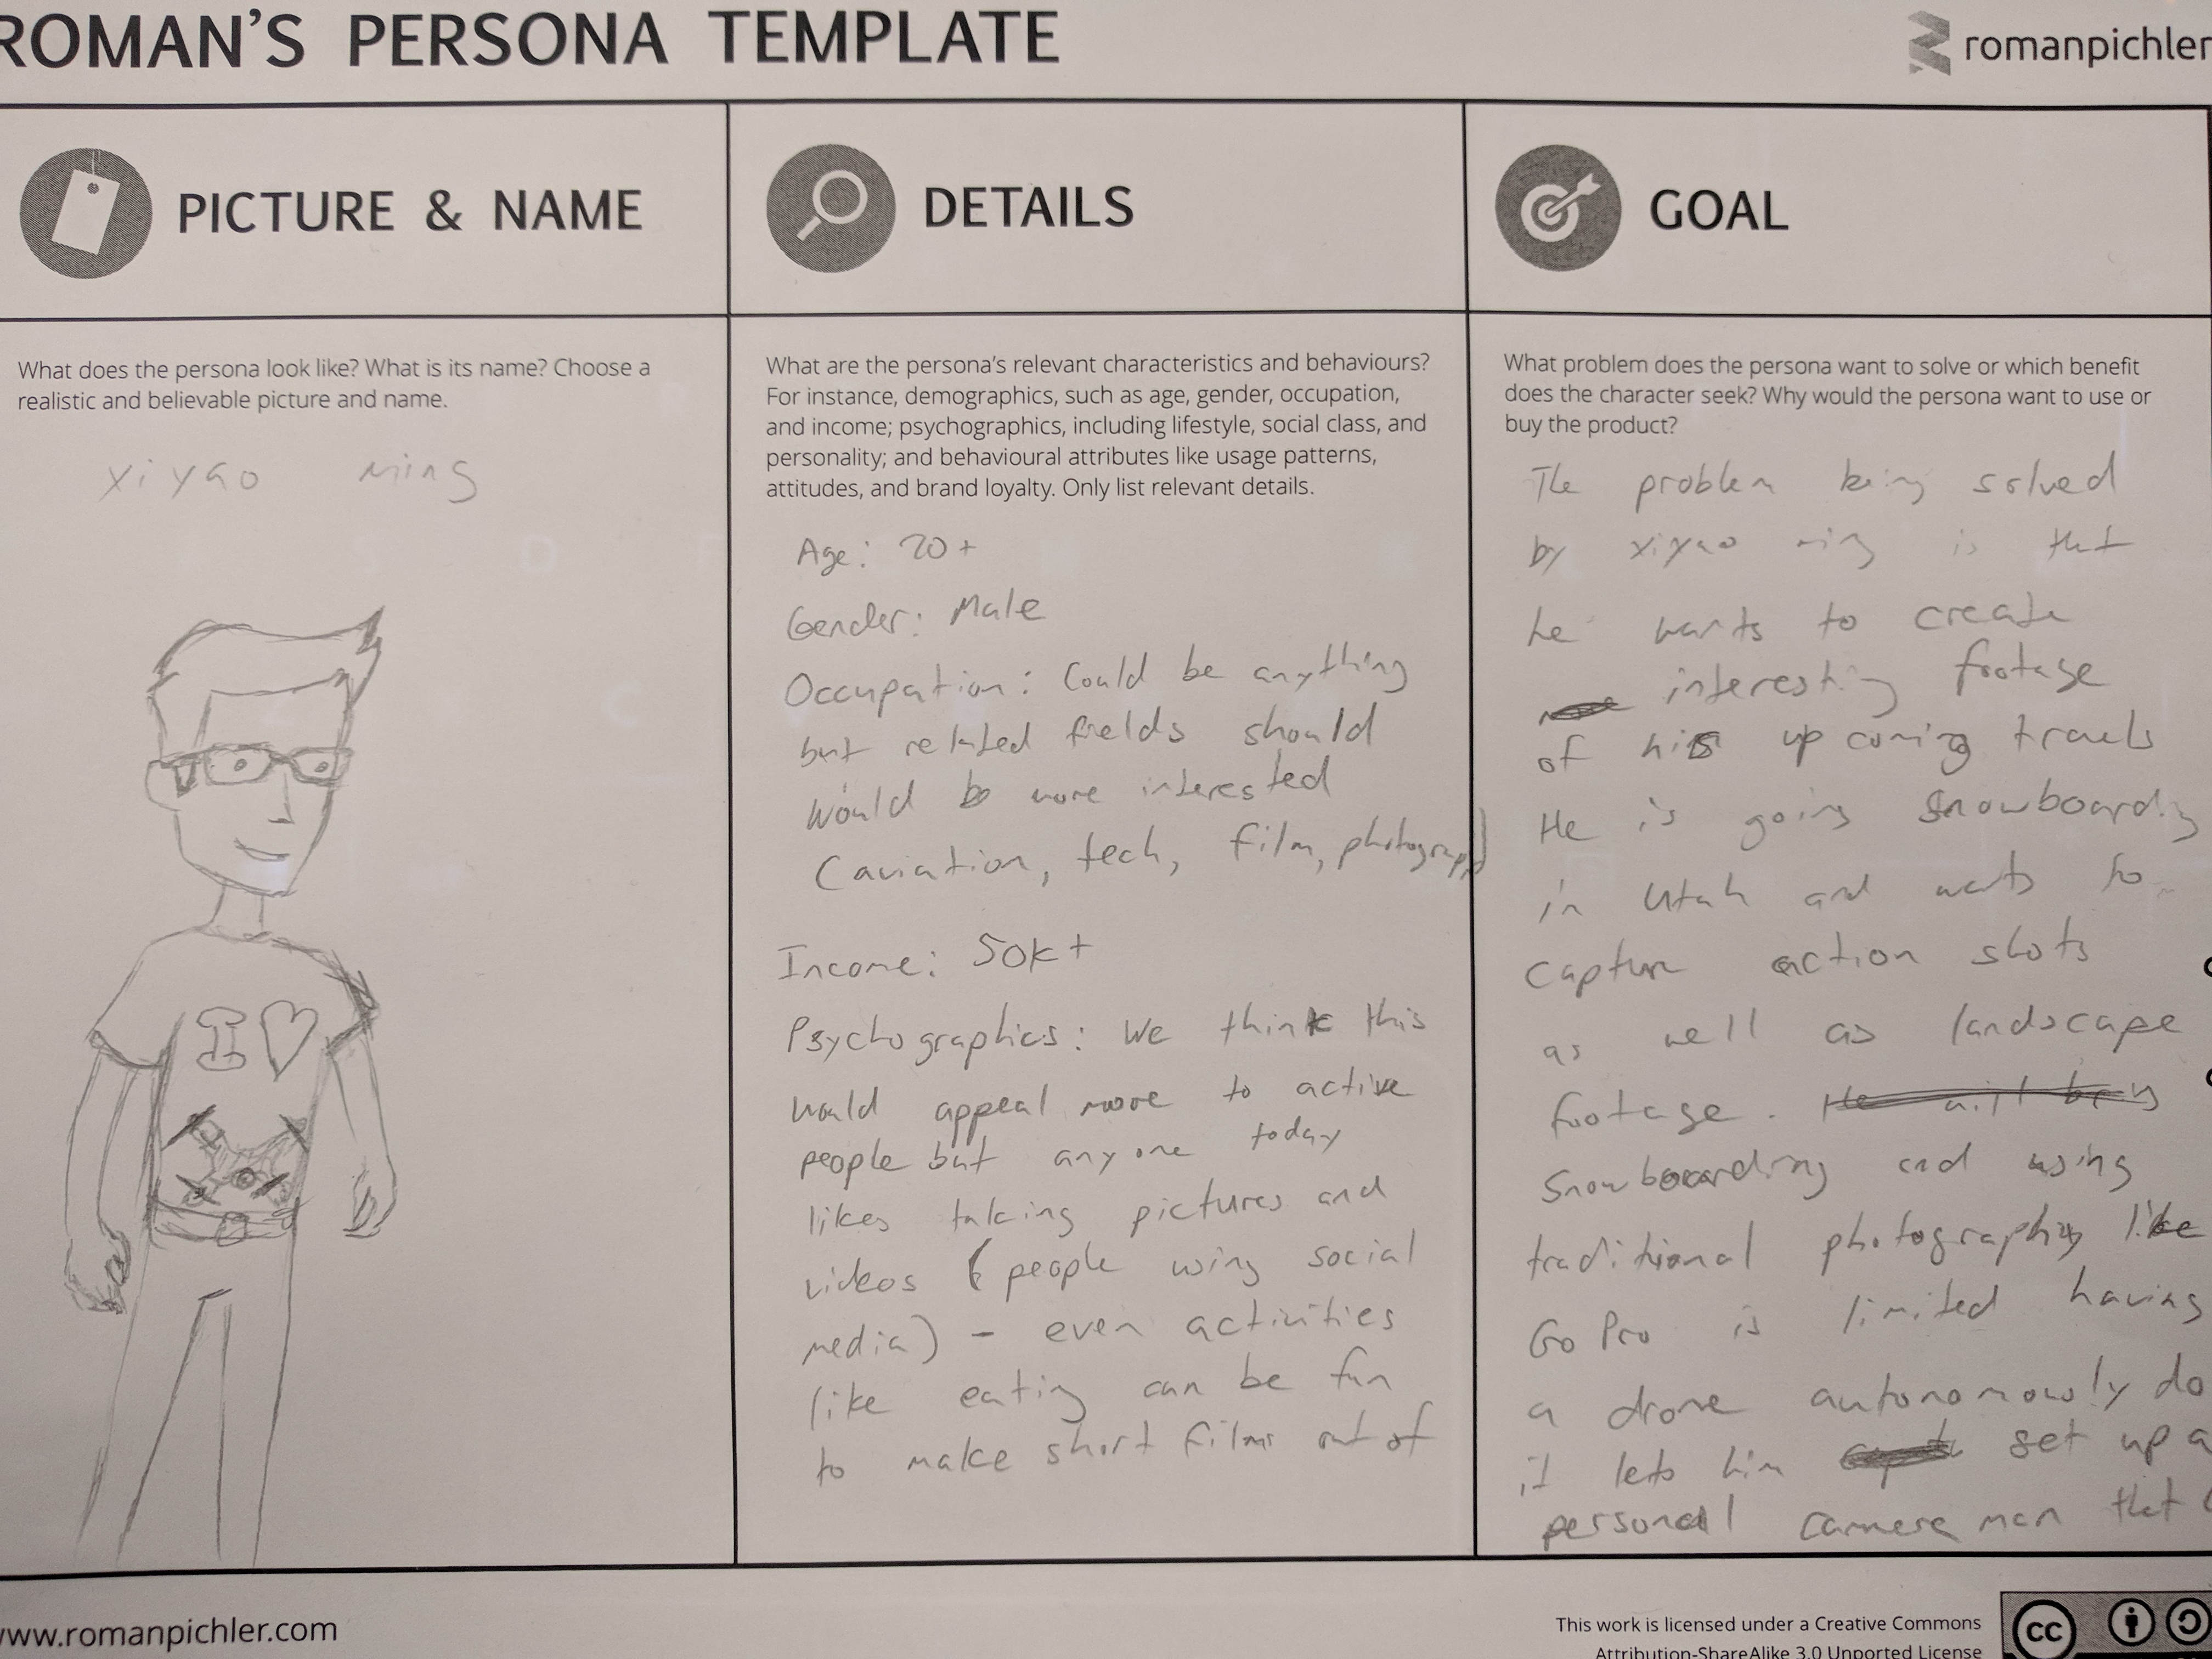 ROMAN'S PERSONA TEMPLATE
romanpichler
PICTURE & NAME
What does the persona look like? What is its name? Choose a
realistic and believable picture and name.
xiyao ming
I ♡
DETAILS
What are the persona's relevant characteristics and behaviours?
For instance, demographics, such as age, gender, occupation,
and income; psychographics, including lifestyle, social class, and
personality; and behavioural attributes like usage patterns,
attitudes, and brand loyalty. Only list relevant details.
Age: 20+
Gender: Male
Occupation: Could be anything
but related fields should
would b more interested
(aviation, tech, film, photography)
Income: 50k+
Psychographics: We think this
would appeal more to active
people but anyone today
likes taking pictures and
videos (people using social
media) - even activities
like eating can be fun
to make short films out of
GOAL
What problem does the persona want to solve or which benefit
does the character seek? Why would the persona want to use or
buy the product?
The problem being solved
by xiyao ming is that
he wants to create
interesting footage
of his upcoming travels
He is going snowboarding
in Utah and wants to
capture action shots
as well as landscape
footage. He will be
snowboarding and using
traditional photography like
Go Pro is limited having
a drone autonomously do
it lets him set up a
personal camera man that
www.romanpichler.com
This work is licensed under a Creative Commons
Attribution-ShareAlike 3.0 Unported License
cc